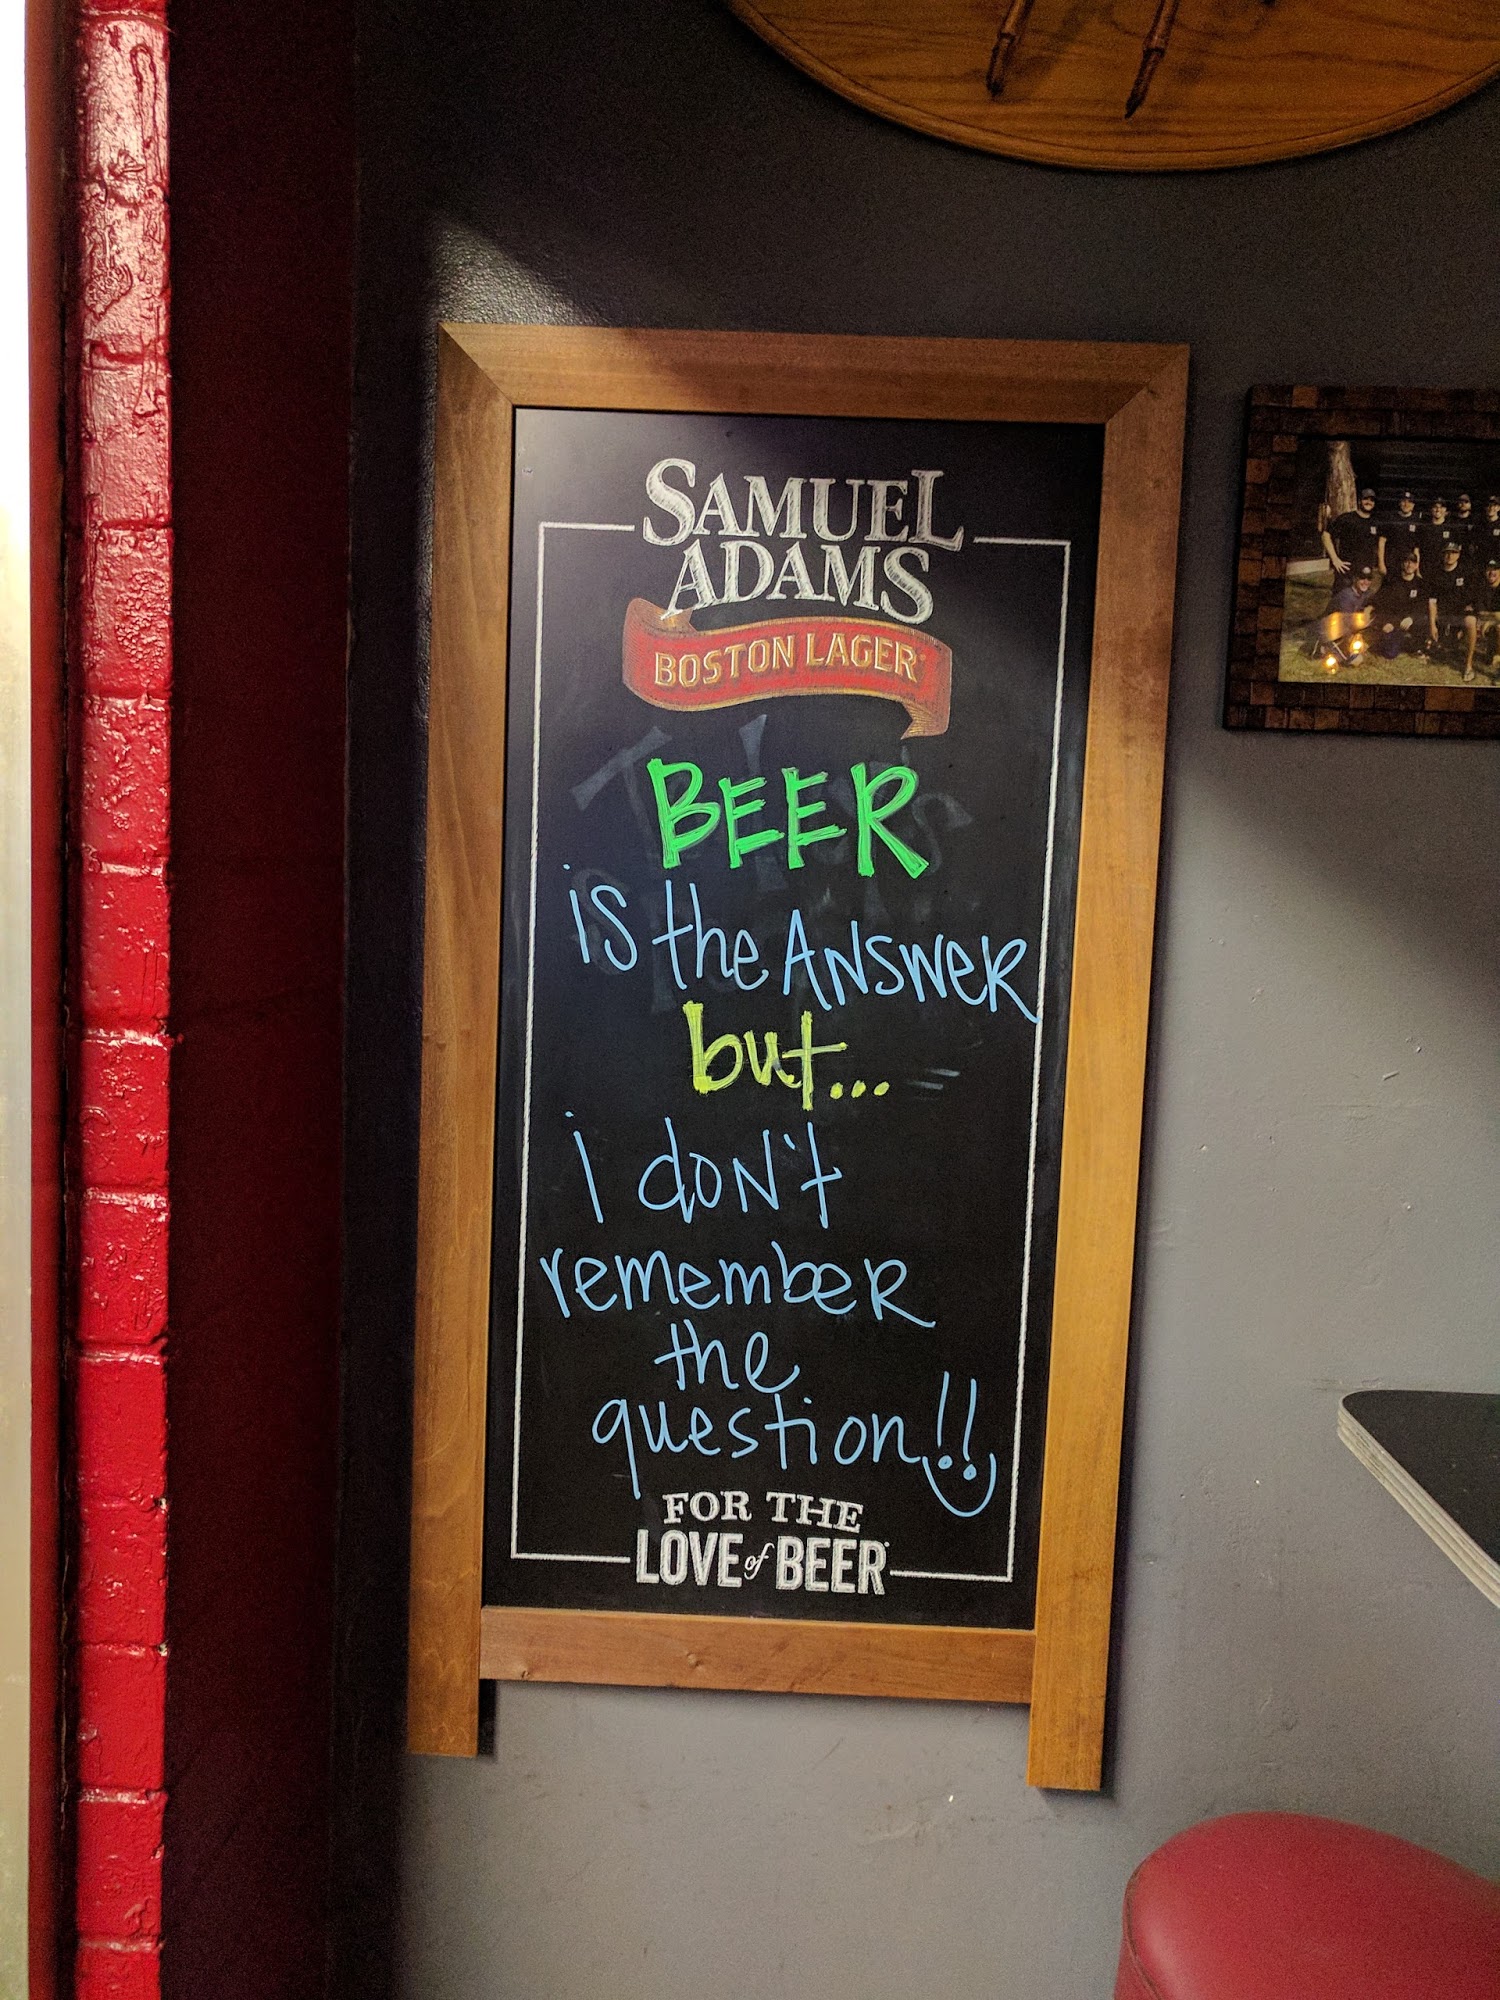 SAMUEL
ADAMS
BOSTON LAGER
BEER
is the ANSWER
but...
i don't
remember
the
question!!
FOR THE
LOVE of BEER